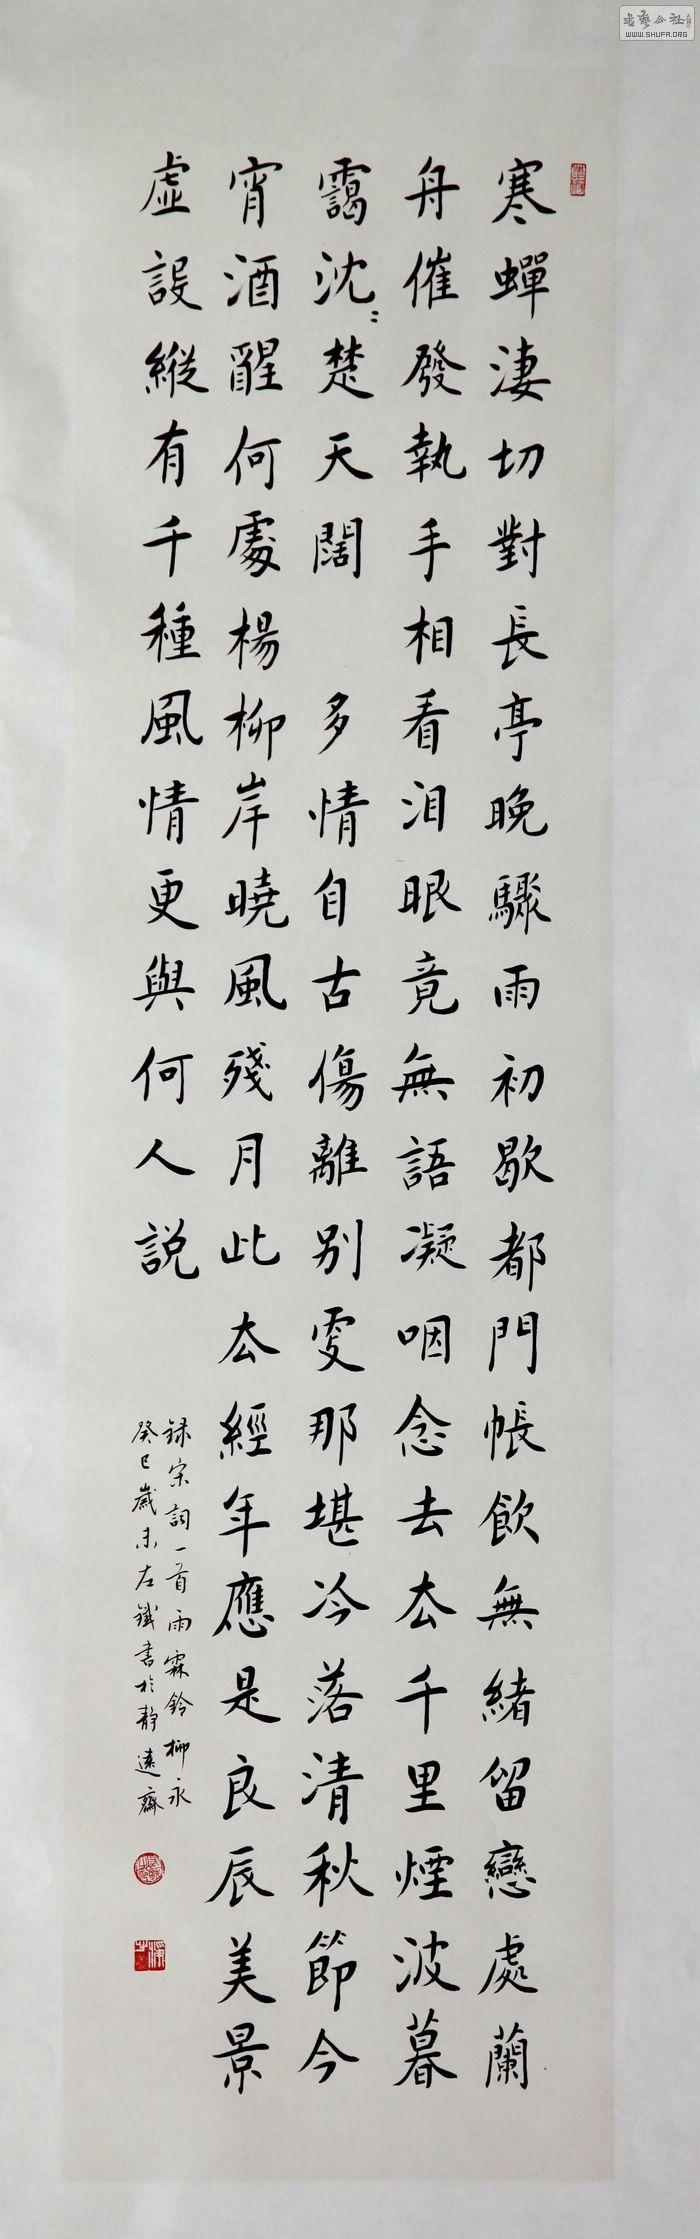 寒蟬淒切對長亭晚驟雨初歇都門帳飲無緒留戀處蘭
舟催發執手相看淚眼竟無語凝咽念去去千里煙波暮
靄沈〻楚天闊　多情自古傷離別更那堪冷落清秋節今
宵酒醒何處楊柳岸曉風殘月此去經年應是良辰美景
虛設縱有千種風情更與何人說
録宋詞一首雨霖鈴柳永
癸巳歲末左鐵書於靜遠齋
書藝公社
WWW.SHUFA.ORG